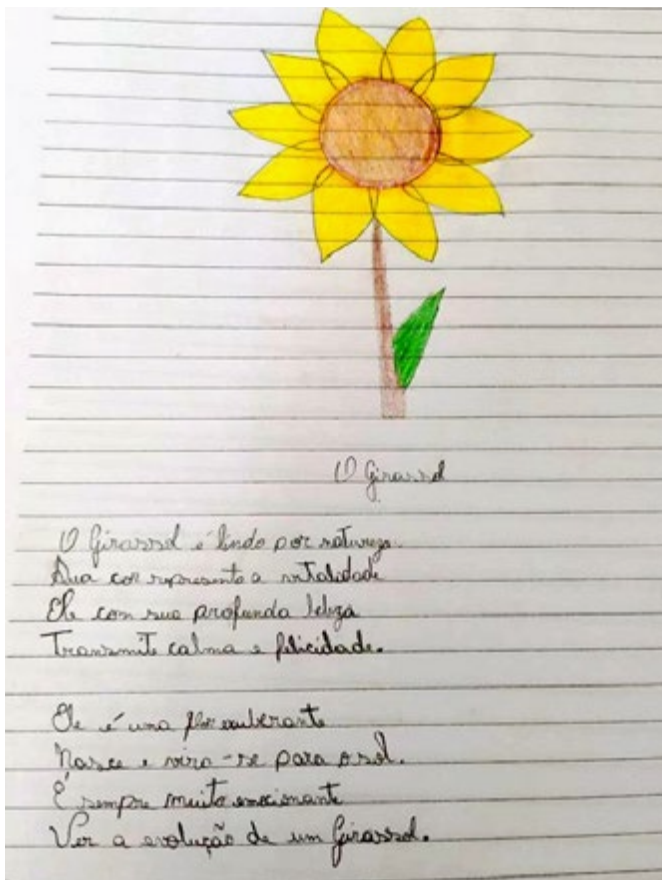 O Girassol
O Girassol é lindo por natureza.
Sua cor representa a vitalidade
Ele com sua profunda beleza
Transmite calma e felicidade.
Ele é uma flor exuberante
Nasce e vira-se para o sol.
É sempre muito emocionante
Ver a evolução de um Girassol.